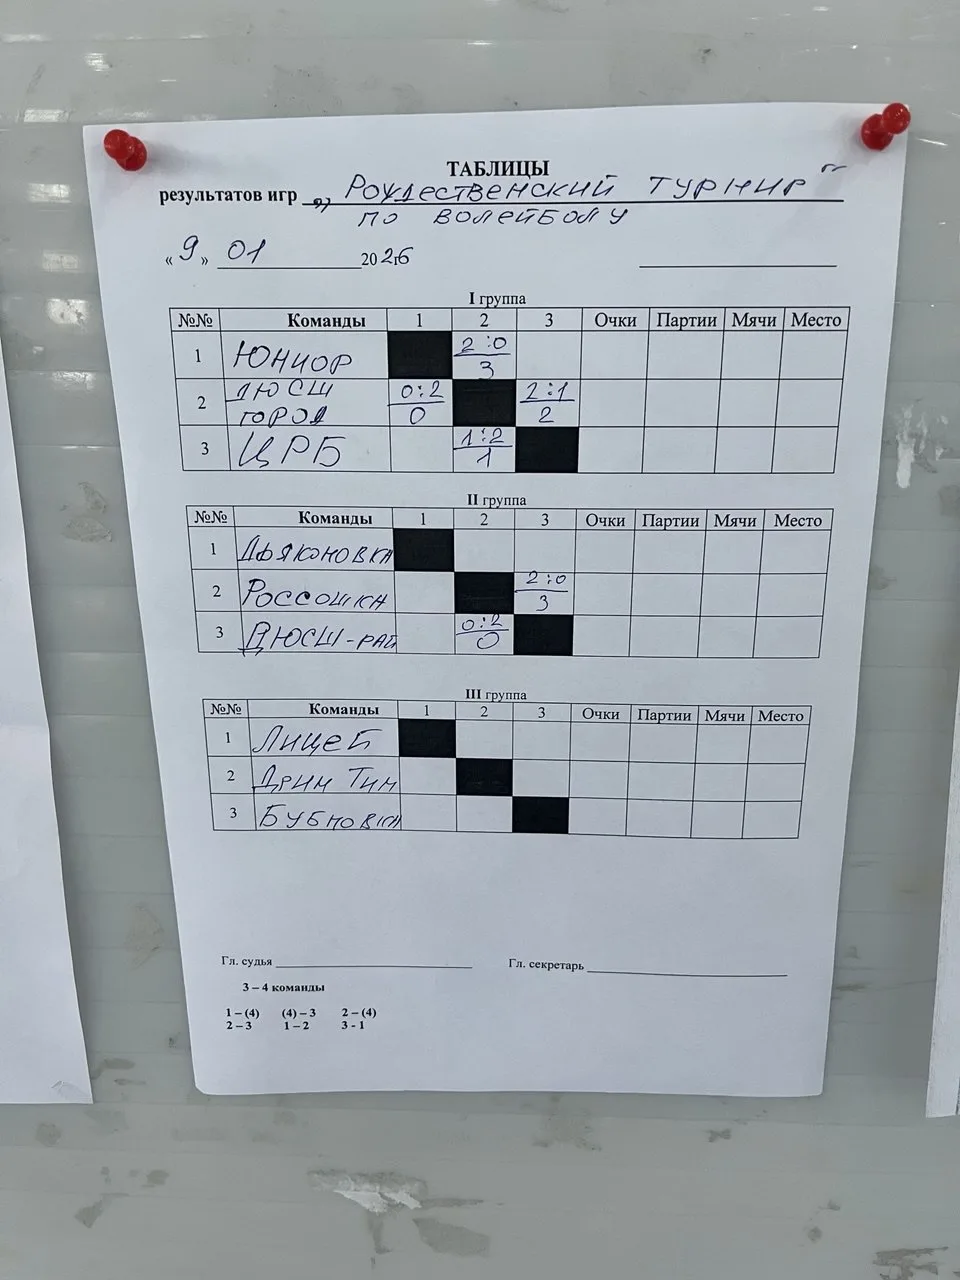 ТАБЛИЦЫ
результатов игр „Рождественский турнир"
по волейболу
« 9 » 01 2026
I группа
№№ Команды 1 2 3 Очки Партии Мячи Место
1 Юниор 2:0 3
2 ДЮСШ город 0:2 0 2:1 2
3 ЦРБ 1:2 1
II группа
№№ Команды 1 2 3 Очки Партии Мячи Место
1 Дьяконовка
2 Россошка 2:0 3
3 ДЮСШ-рай 0:2 0
III группа
№№ Команды 1 2 3 Очки Партии Мячи Место
1 Лицей
2 Дрим Тим
3 Бубновка
Гл. судья Гл. секретарь
3 – 4 команды
1 – (4) (4) – 3 2 – (4)
2 – 3 1 – 2 3 - 1